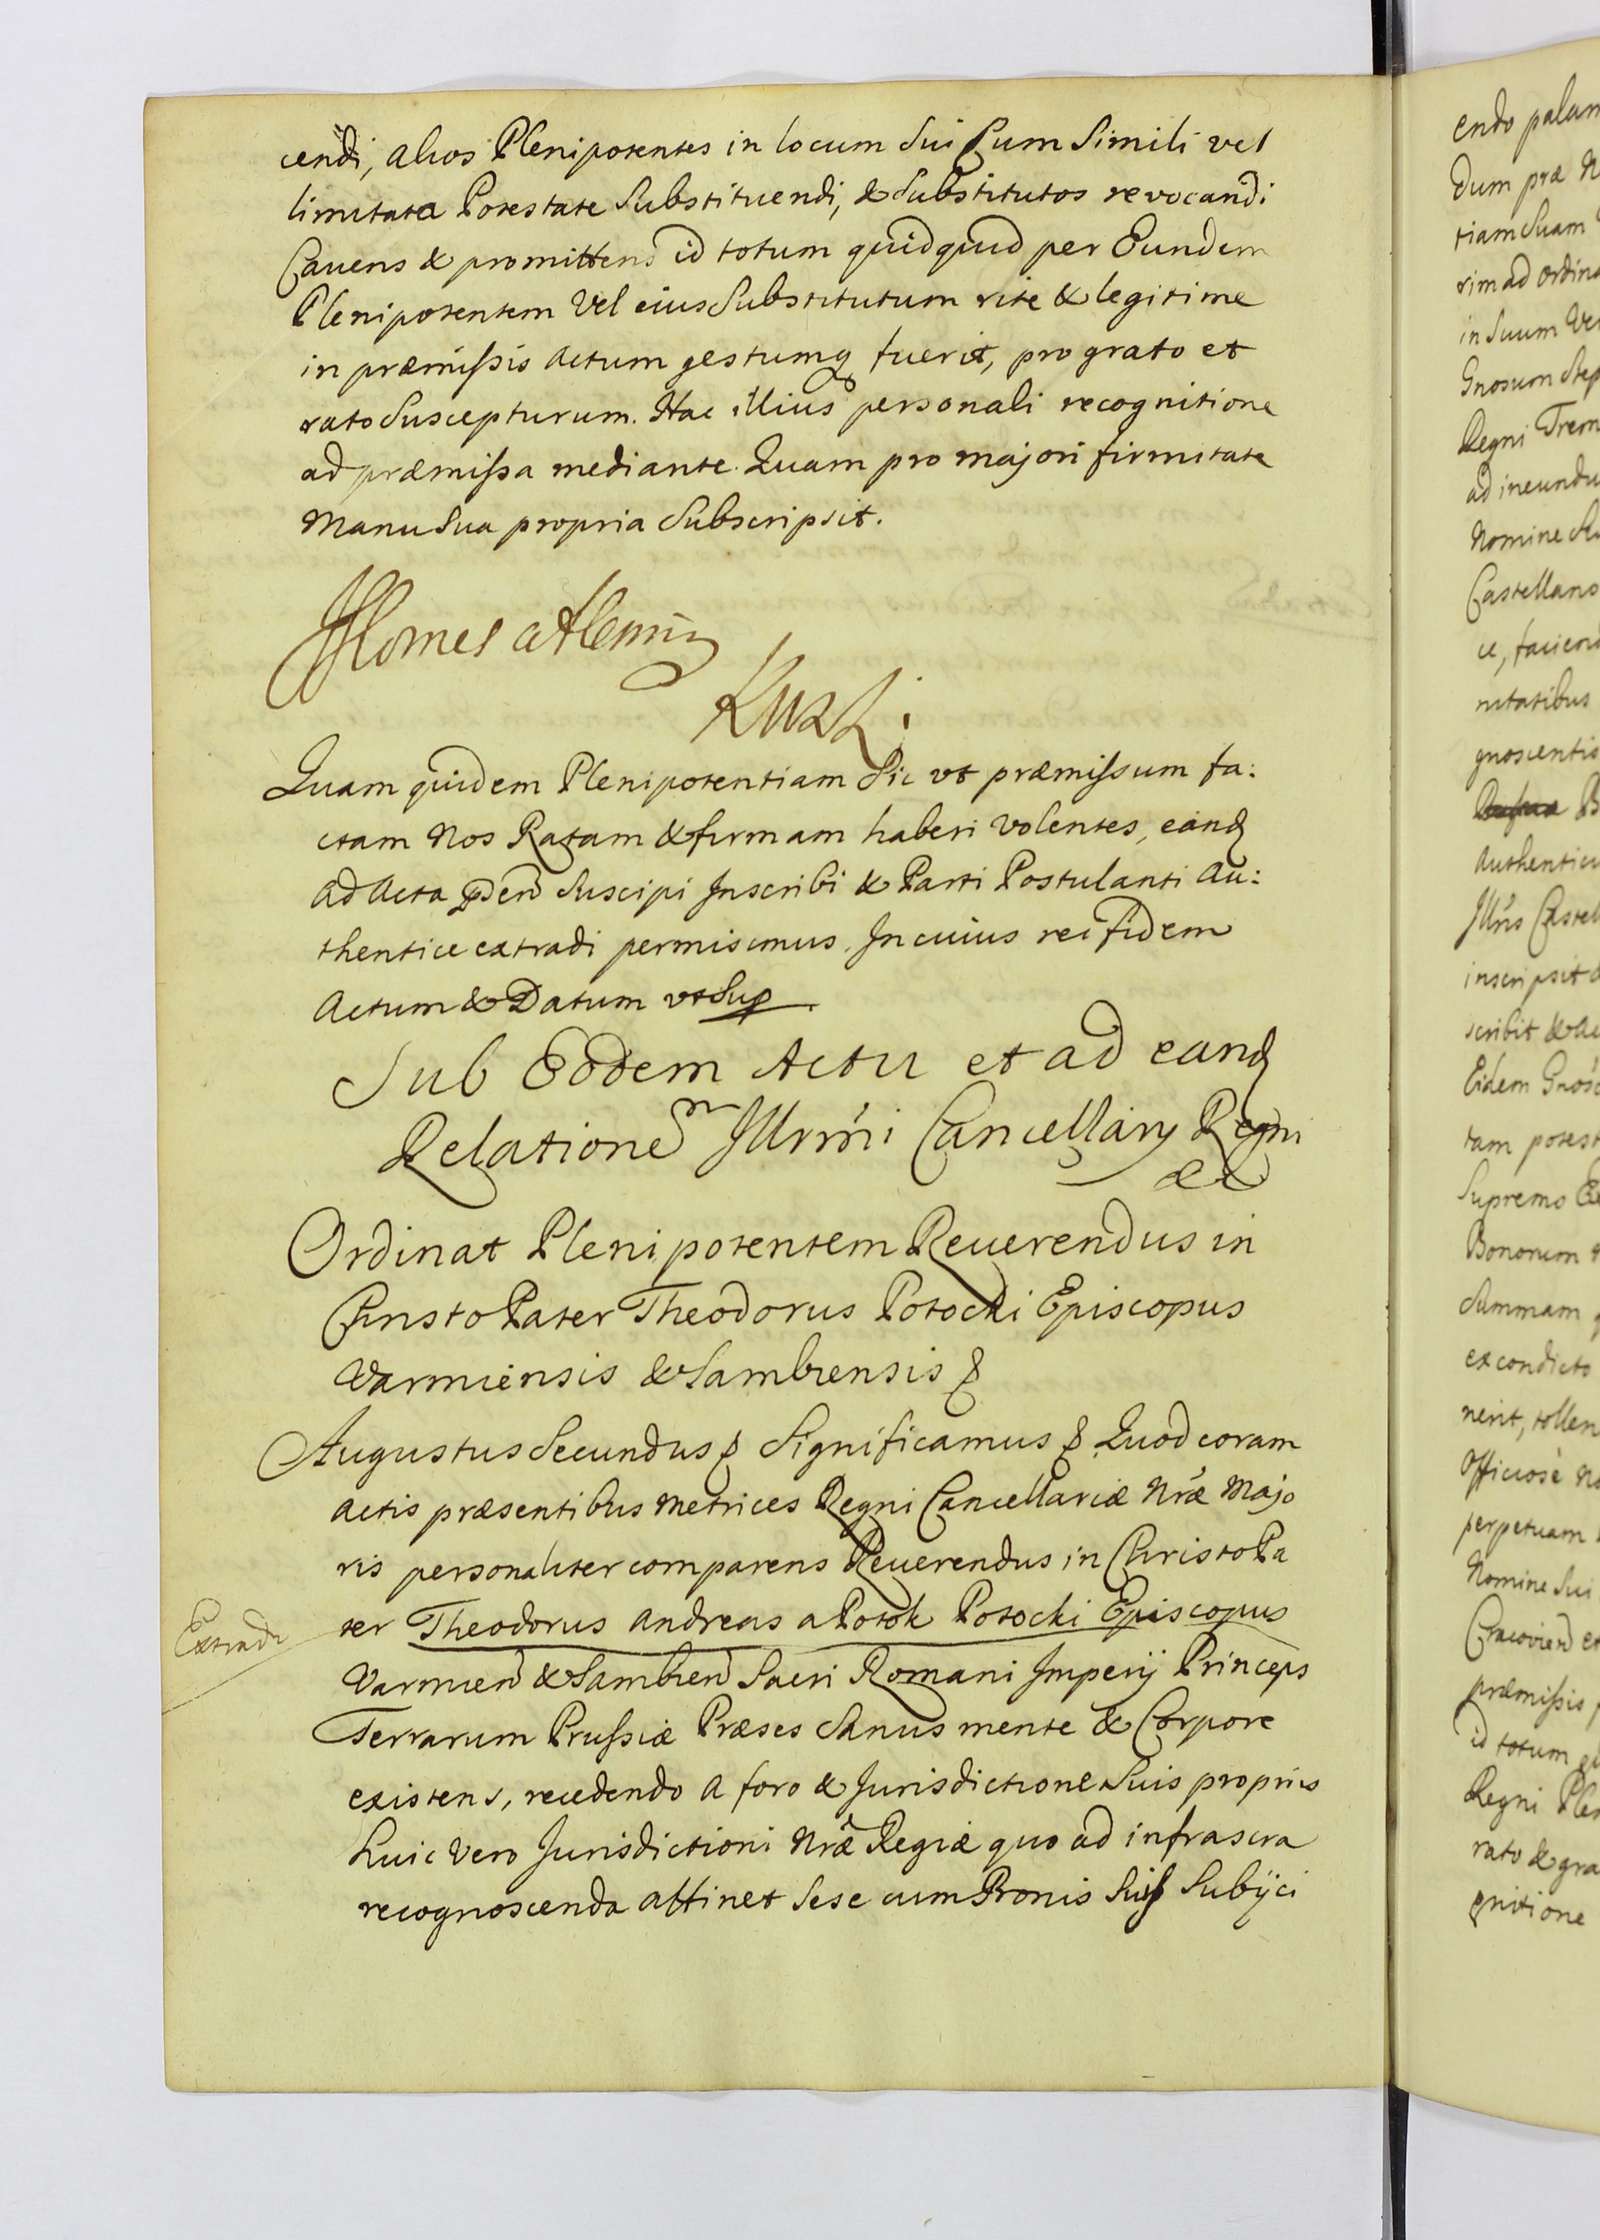 cendi, alios Plenipotentes in locum Sui Cum Simili vel
limitata Potestate Substituendi, & Substitutos revocandi
Cavens & promittens id totum quidquid per Eundem
Plenipotentem Vel eius Substitutum rite & legitime
in præmissis actum gestumq fuerit, pro grato et
rato Suscepturum. Hac illius personali recognitione
ad præmissa mediante. Quam pro majori firmitate
Manu Sua propria Subscripsit.
Quam quidem Plenipotentiam Sic vt præmissum fa:
ctam Nos Ratam & firmam haberi volentes, eand
ad Acta Suscipi Inscribi & Parti Postulanti Au:
thentice extradi permisimus. In cuius rei fidem
Actum & Datum vt Sup
Sub Eodem Actu et ad eand
Relationem Illrmi Cancellarij Regni
Ordinat Plenipotentem Reuerendus in
Christo Pater Theodorus Potocki Episcopus
Varmiensis & Sambiensis &
Augustus Secundus & Significamus & Quod coram
actis præsentibus Metrices Regni Cancellariæ Nræ Majo
ris personaliter comparens Reuerendus in Christo Pa
Extradi
ter Theodorus Andreas a Potok Potocki Episcopus
Varmien & Sambien Sacri Romani Imperij Princeps
Terrarum Prussiæ Præses Sanus mente & Corpore
existens, recedendo a foro & Jurisdictione Suis proprijs
huic vero Jurisdictioni Nræ Regiæ quo ad infrascra
recognoscenda attinet Sese cum Bonis Suis Subijci
endo palam
dum præ
tiam Suam
rim ad ordina
in Suum
Gnosum Step
Regni Trem
ad ineundu
Nomine
Castellano
ce, faciend
nitatibus
gnoscentis
Authentic
Illris Castel
inscripsit
scribit &
Eidem
tam potest
Supremo
Bonorum
Summam
ex condicto
nerit, tollen
Officiose
perpetuam
Nomine Sui
Cracovien et
præmissis
id totum
Regni Plen
rato & gra
gnitione